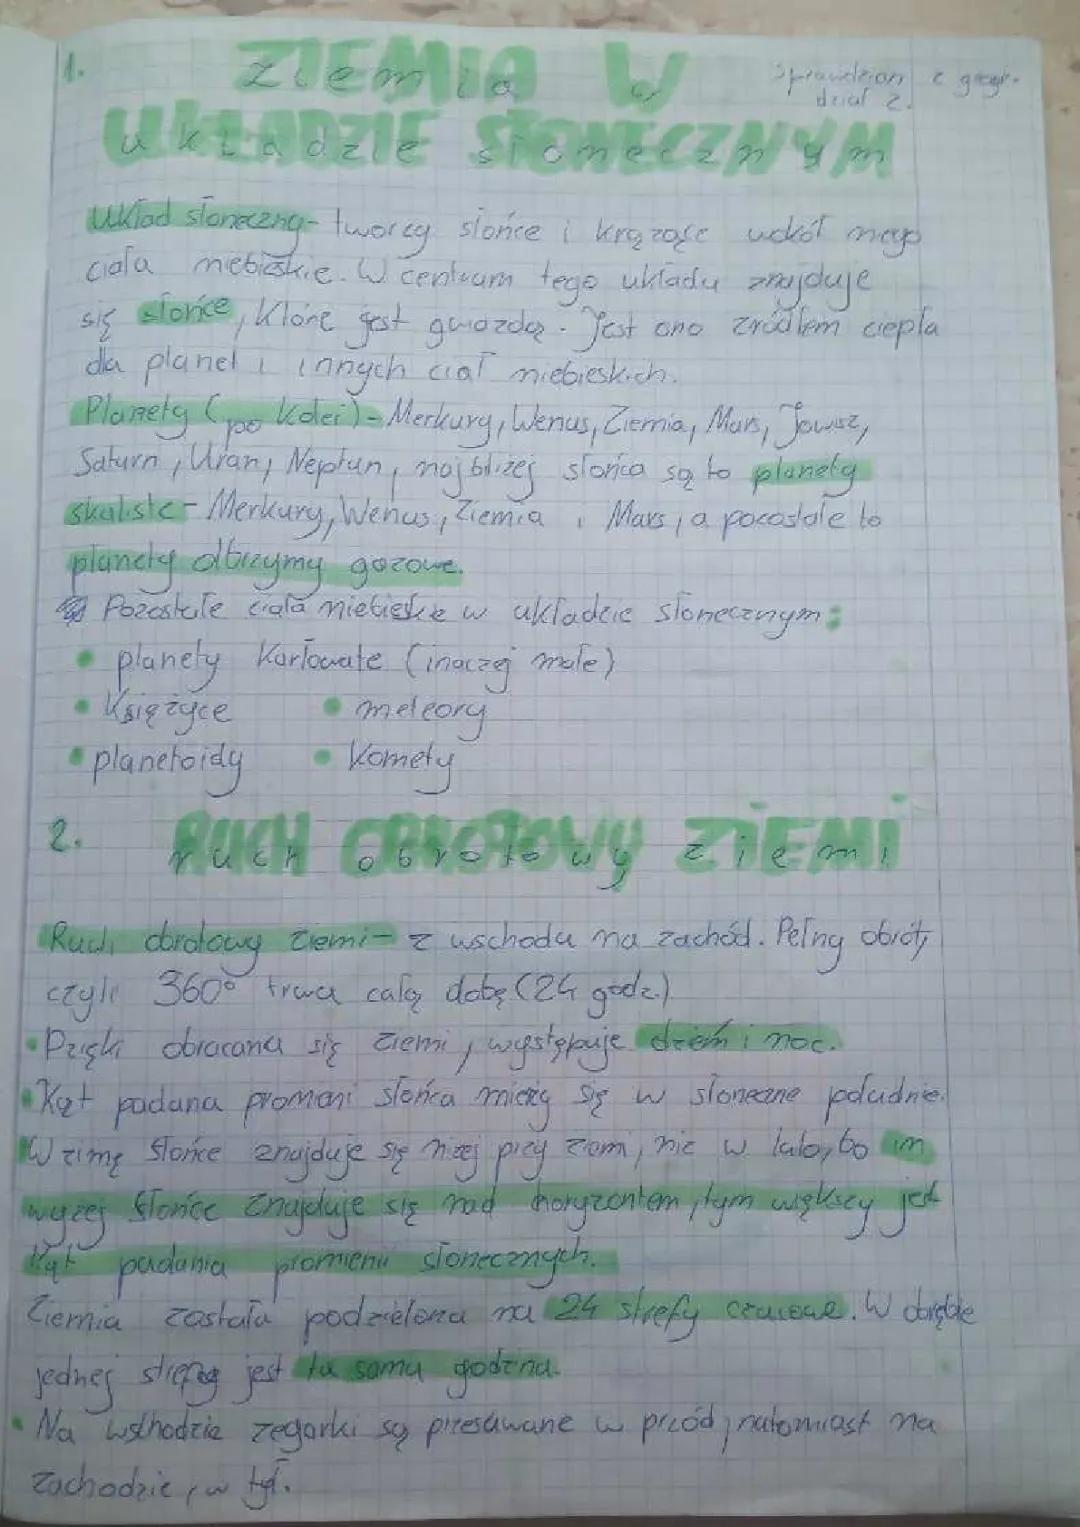 1. ZIEMIA W
Sprawdzian z geogr.
dział 2.
UKŁADZIE SŁONECZNYM
Układ słoneczny- tworzy słońce i krążące wokół niego
ciała niebieskie. W centrum tego układu znajduje
się słońce, które jest gwiazdą. Jest ono źródłem ciepła
dla planet i innych ciał niebieskich.
Planety (po kolei)- Merkury, Wenus, Ziemia, Mars, Jowisz,
Saturn, Uran, Neptun, najbliżej słońca są to planety
skaliste- Merkury, Wenus, Ziemia i Mars, a pozostałe to
planety olbrzymy gazowe.
Pozostałe ciała niebieskie w układzie słonecznym:
• planety karłowate (inaczej małe)
• Księżyce • meteory
• planetoidy • Komety
2. RUCH OBROTOWY ZIEMI
Ruch obrotowy ziemi- z wschodu na zachód. Pełny obrót,
czyli 360° trwa całą dobę (24 godz.)
• Dzięki obracaniu się ziemi, występuje dzień i noc.
• Kąt padana promieni słońca mierzy się w słoneczne południe.
• W zimę słońce znajduje się niżej przy ziemi, niż w lato, bo im
wyżej słońce znajduje się nad horyzontem, tym większy jest
kąt padania promieni słonecznych.
Ziemia została podzielona na 24 strefy czasowe. W obrębie
jednej strefy jest ta sama godzina.
• Na wschodzie zegarki są przesuwane w przód, natomiast na
zachodzie, w tył.